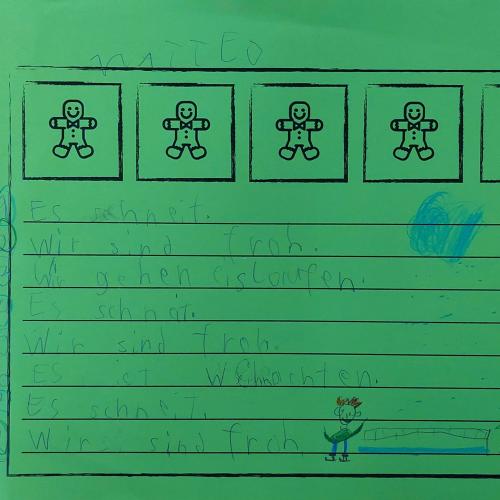 MATTEO
Es schneit.
Wir sind froh.
Wir gehen eislaufen.
Es schneit.
Wir sind froh.
Es ist Weihnachten.
Es schneit.
Wir sind froh